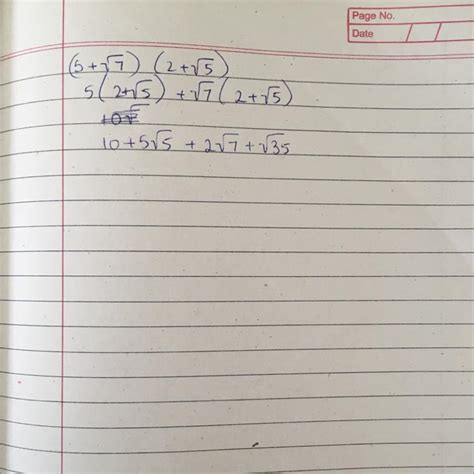 Page No.
Date / /
(5+√7) (2+√5)
5(2+√5) +√7(2+√5)
10+5√5 + 2√7+√35